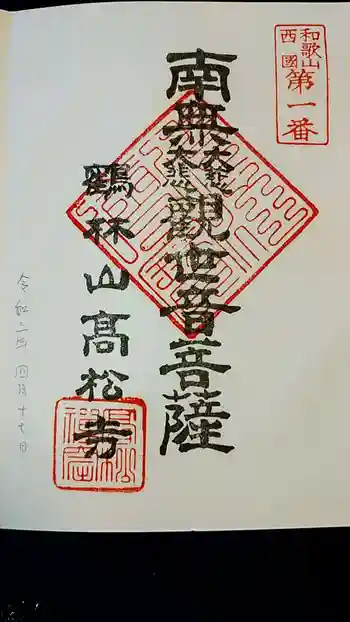 和歌山
西國
第一番
南無大慈大悲觀世音菩薩
鶴林山高松寺
令和二年四月十七日